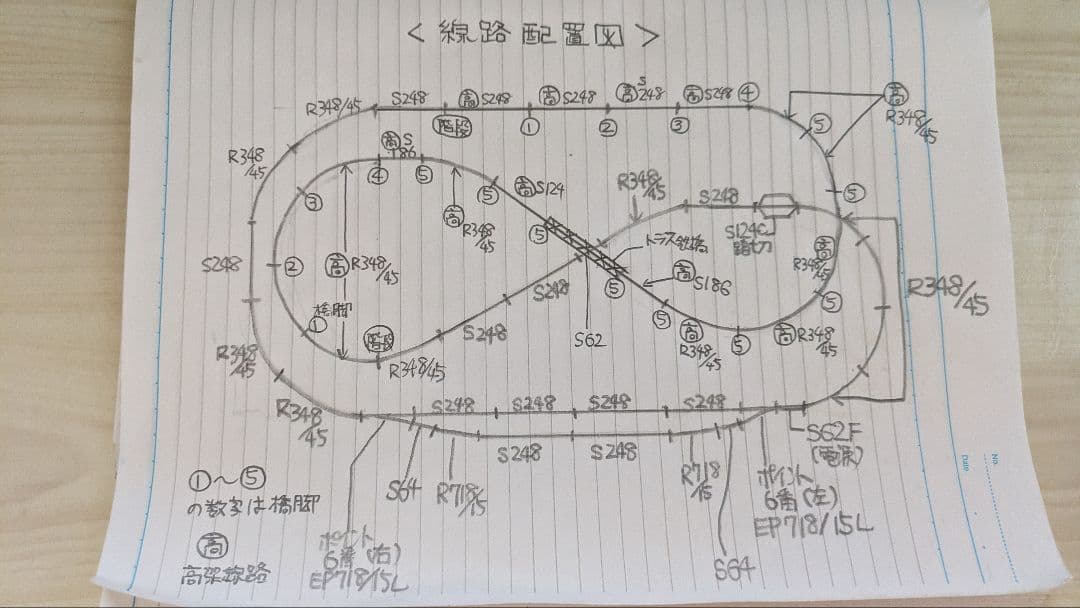 ＜線路配置図＞
R348/45
S248
高 S248
高 S248
高 S248
高 S248 ④
階段
①
②
③
⑤
高
R348/45
R348
/45
高 S
186
④
⑤
③
⑤
高 S124
高
R348/45
R348/45
S248
⑤
S124C
踏切
高
R348/45
S248
②
高 R348/45
⑤
トラス鉄橋
高
S186
⑤
⑤
R348/45
橋脚
①
階段
R348/45
S248
S248
S62
⑤
高
R348/45
⑤
高 R348
/45
R348
/45
R348
/45
S248
S248
S248
S248
S62F
(電源)
S248
S248
S64
R718/15
R718
/15
ポイント
6番(左)
EP718/15L
S64
ポイント
6番(右)
EP718/15L
①～⑤
の数字は橋脚
高
高架線路
No.
Date